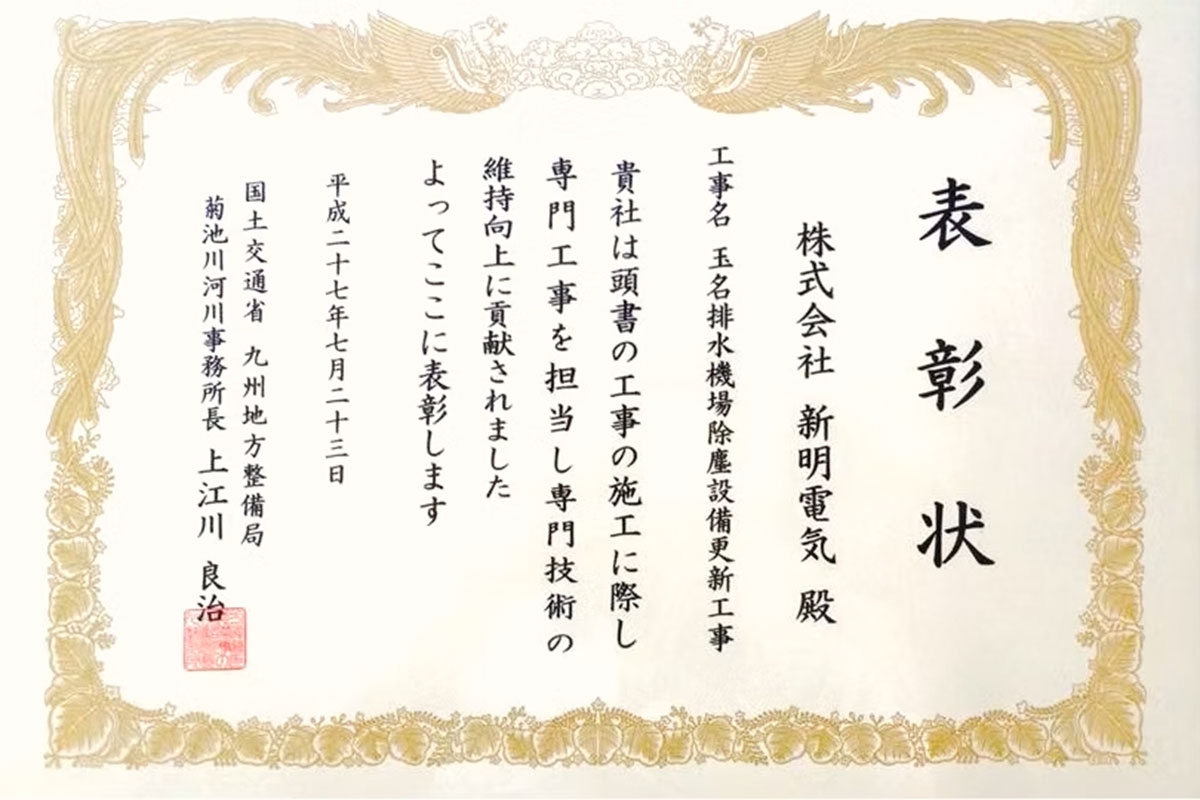 表彰状
株式会社 新明電気 殿
工事名 玉名排水機場除塵設備更新工事
貴社は頭書の工事の施工に際し
専門工事を担当し専門技術の
維持向上に貢献されました
よってここに表彰します
平成二十七年七月二十三日
国土交通省 九州地方整備局
菊池川河川事務所長 上江川 良治